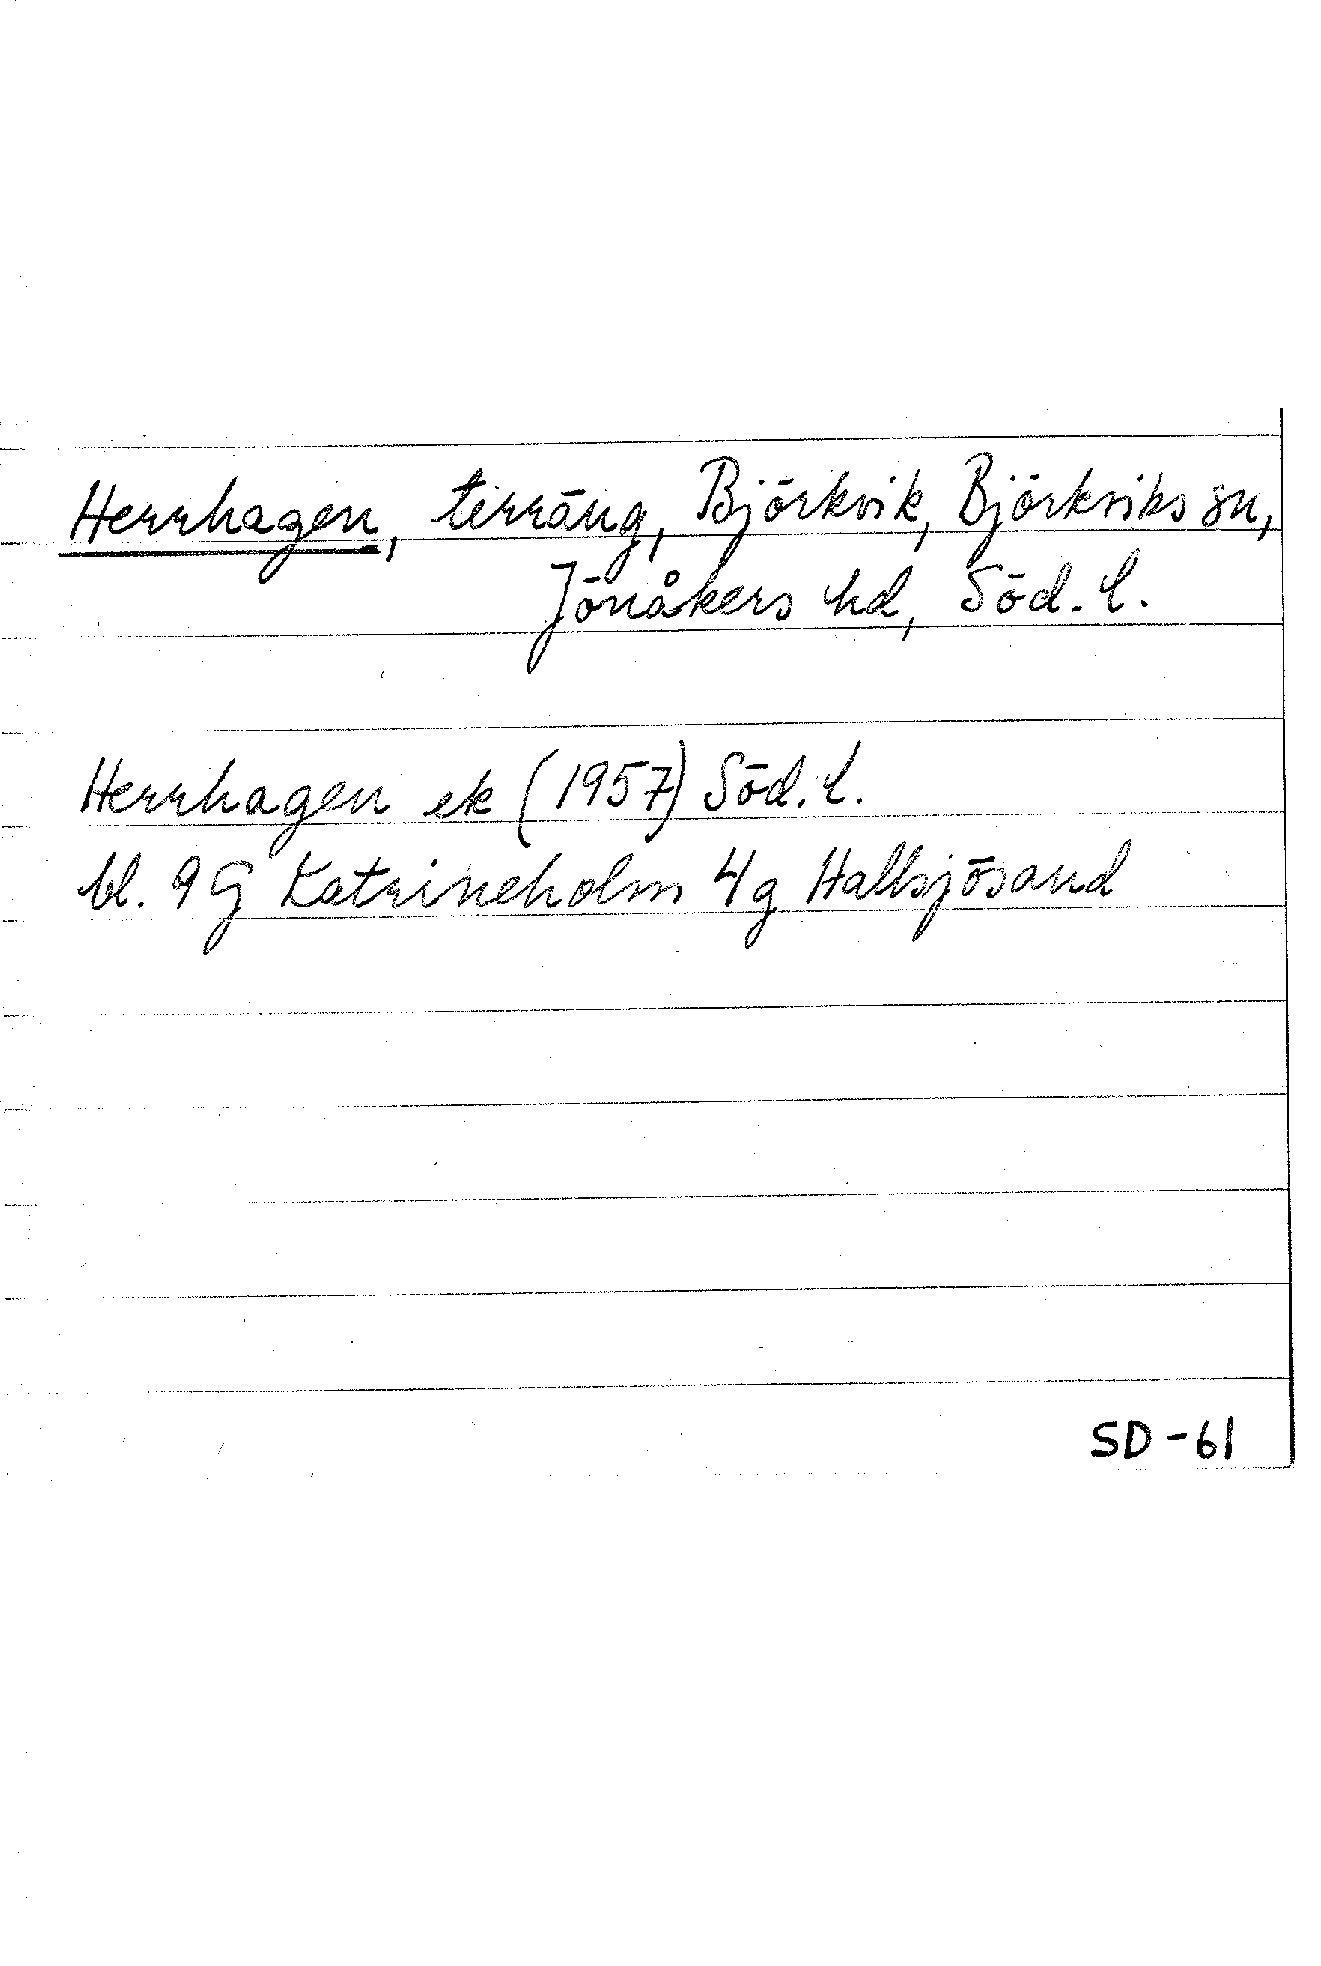 Herrhagen, terräng, Björkvik, Björkviks sn,
Jönåkers hd, Söd. l.
Herrhagen ek (1957) Söd. l.
bl. 9G Katrineholm 4g Hallsjösand
SD-61